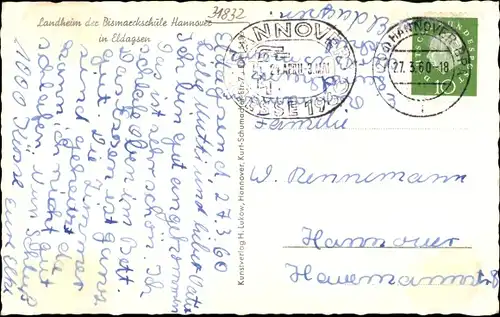 Landheim der Bismarckschule Hannover
in Eldagsen
31832
Eldagsen d. 27.3.60
Liebe Mutti und lieber Vati
Ich bin gut angekommen
Das ist sehr schön. Ich
schlafe oben im Bett.
Das Essen ist ganz
gut. Die Zimmer
sind geheizt da
kann ich nicht gut
schlafen. Nun Schluß
1000 Küsse eure
Kunstverlag H. Lukow, Hannover, Kurt-Schumacher-Str.
HANNOVER
APRIL 3. MAI
MESSE 1960
HANNOVER
27. 3. 60 - 18
10
Familie
W. Rennemann
Hannover